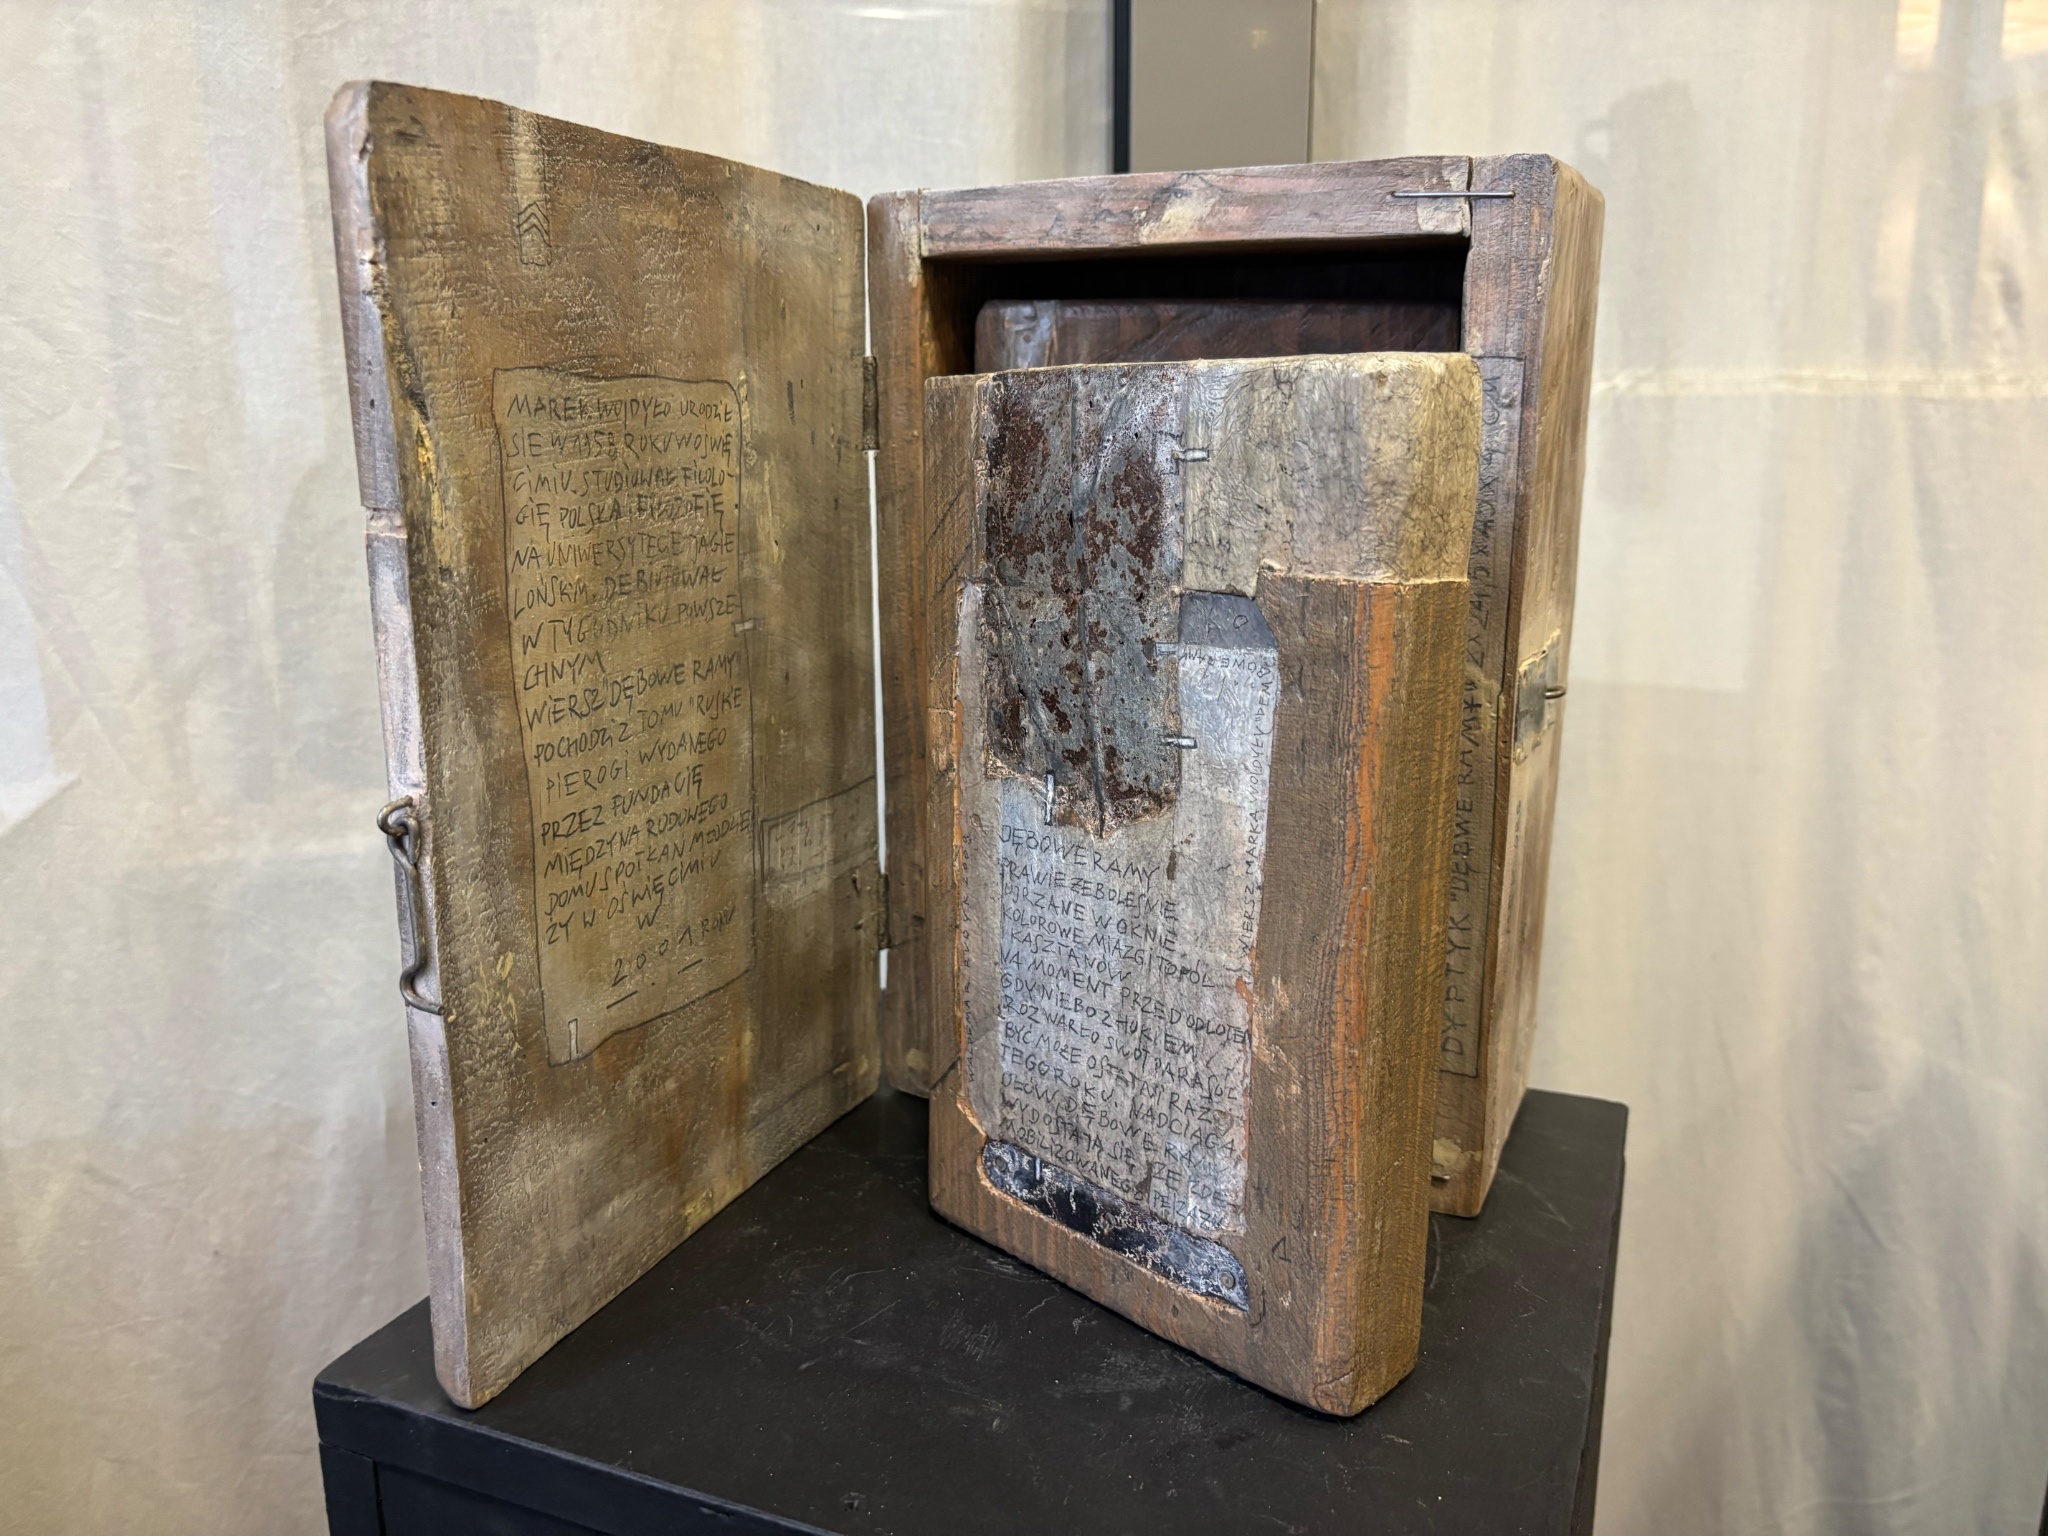 MAREK WOJDYŁO URODZIŁ
SIĘ W 1958 ROKU W OŚWIĘ
CIMIU. STUDIOWAŁ FILOLO-
GIĘ POLSKĄ I FILOZOFIĘ
NA UNIWERSYTECIE JAGIE
LOŃSKIM. DEBIUTOWAŁ
W TYGODNIKU POWSZE-
CHNYM
WIERSZ "DĘBOWE RAMY"
POCHODZI Z TOMU "RUSKIE
PIEROGI WYDANEGO
PRZEZ FUNDACJĘ
MIĘDZYNARODOWEGO
DOMU SPOTKAŃ MŁODZIE
ŻY W OŚWIĘCIMIU
W
2001 ROKU
DĘBOWE RAMY
PRAWIE ŻE BOLEŚNIE
UJRZANE W OKNIE
KOLOROWE MIAZGI TOPÓL
I KASZTANÓW
NA MOMENT PRZED ODLOTEM
GDY NIEBO Z HUKIEM
ROZWARŁO SWÓJ PARASOL
BYĆ MOŻE OSTATNI RAZ
TEGO ROKU. NADCIĄGA
OŁÓW. DĘBOWE RAMY
WYDOSTAJĄ SIĘ ZE ZDE
MOBILIZOWANEGO PEJZAŻU
WIERSZ MARKA
1
DYPTYK "DĘBOWE RAMY"